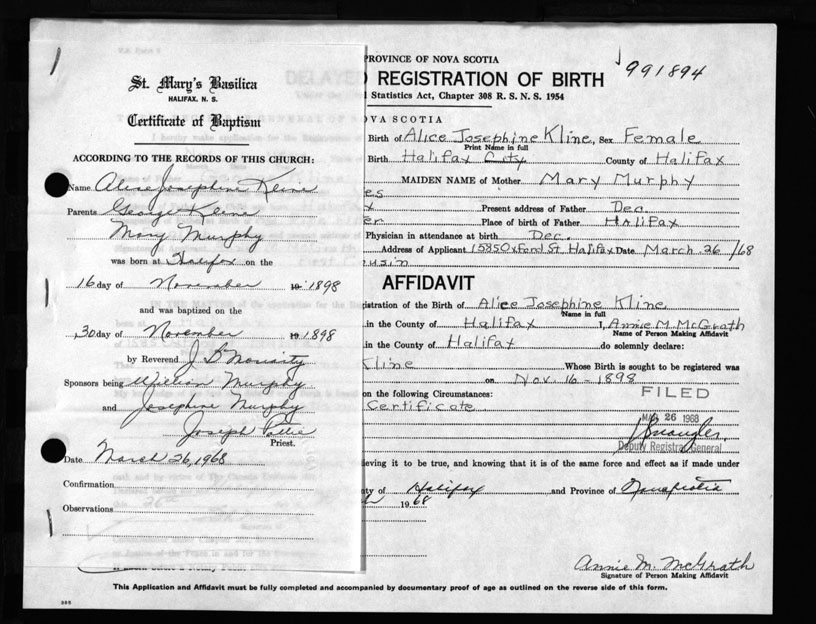 St. Mary's Basilica
HALIFAX, N. S.
Certificate of Baptism
ACCORDING TO THE RECORDS OF THIS CHURCH:
Name Alice Josephine Kline
Parents George Kline
Mary Murphy
was born at Halifax on the
16 day of November 19 1898
and was baptized on the
30 day of November 19 1898
by Reverend J B Moriarty
Sponsors being William Murphy
and Josephine Murphy
Joseph
Priest.
Date March 26, 1968
Confirmation
Observations
PROVINCE OF NOVA SCOTIA
991894
REGISTRATION OF BIRTH
Statistics Act, Chapter 308 R. S. N. S. 1954
OVA SCOTIA
Birth of Alice Josephine Kline, Sex Female
Print Name in full
Birth Halifax City County of Halifax
MAIDEN NAME of Mother Mary Murphy
es
x Present address of Father Dec.
er Place of birth of Father Halifax
Physician in attendance at birth Dec.
Address of Applicant 1585 Oxford St. Halifax Date March 26/68
usin
AFFIDAVIT
istration of the Birth of Alice Josephine Kline
Name in full
in the County of Halifax I, Annie M. McGrath
Name of Person Making Affidavit
in the County of Halifax do solemnly declare:
Kline Whose Birth is sought to be registered was
on Nov. 16-1898
on the following Circumstances:
FILED
Certificate
26 1968
Deputy Registrar General
ieving it to be true, and knowing that it is of the same force and effect as if made under
ty of Halifax and Province of Nova Scotia
1968
Annie M. McGrath
Signature of Person Making Affidavit
This Application and Affidavit must be fully completed and accompanied by documentary proof of age as outlined on the reverse side of this form.